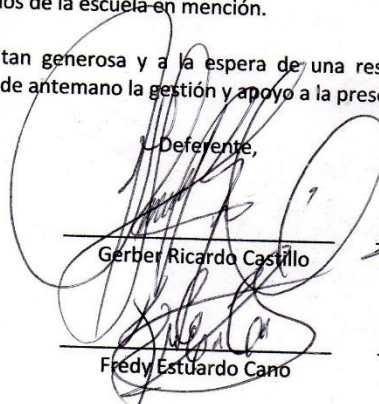 os de la escuela en mención.
tan generosa y a la espera de una res
de antemano la gestión y apoyo a la prese
Deferente,
Gerber Ricardo Castillo
Fredy Estuardo Cano